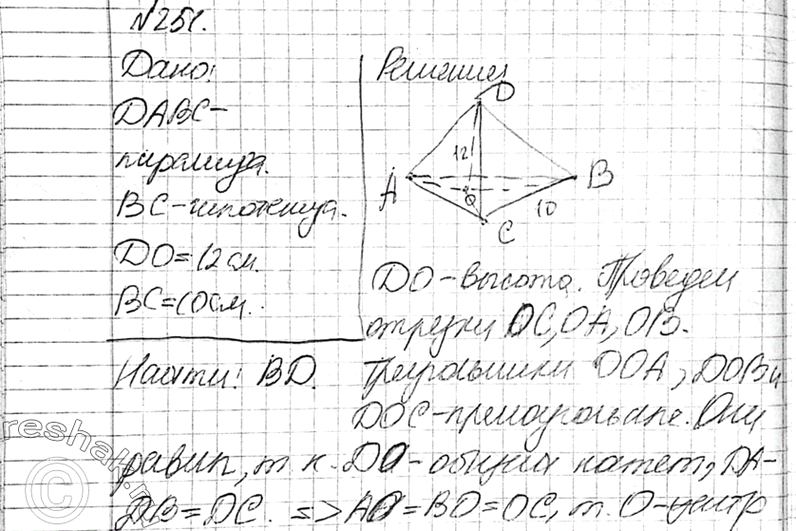 №251.
Дано:
DABC-
пирамида.
BC-гипотенуза.
DO=12см.
BC=10см.
Найти: BD.
Решение
D
12
A
O
B
10
C
DO-высота. Проведем
отрезки OC, OA, OB.
Треугольники DOA, DOB и
DOC-прямоугольные. Они
равны, т.к. DO-общий катет, DA-
DB=DC. => AO=BO=OC, т. O-центр
reshak.ru
©